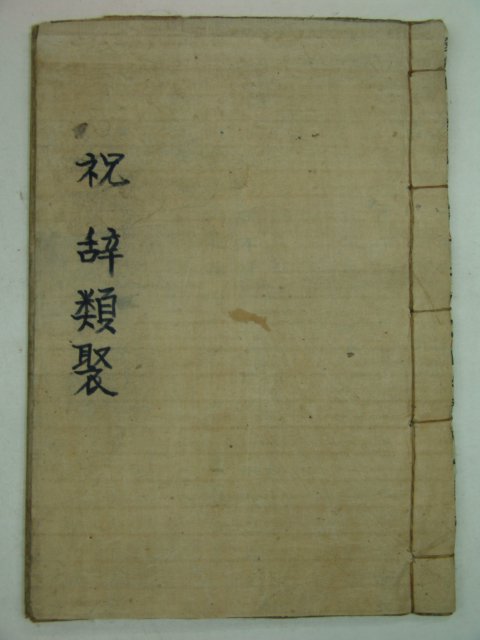 祝辞類聚